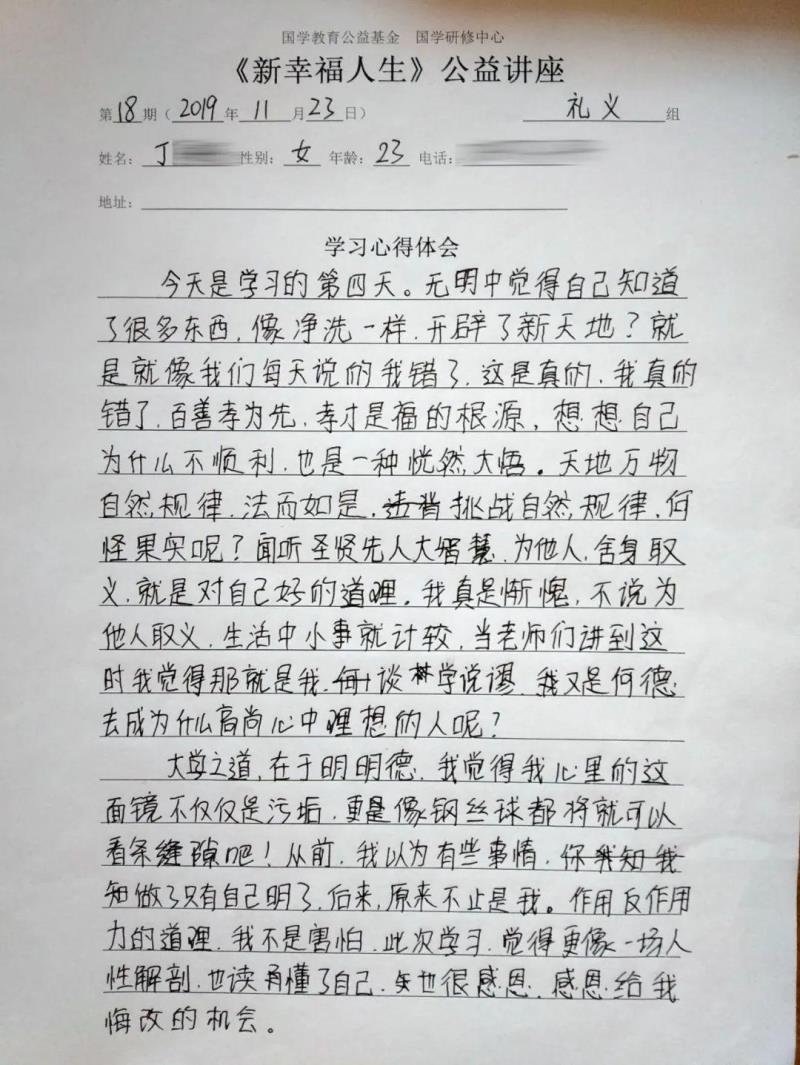 国学教育公益基金 国学研修中心
《新幸福人生》公益讲座
第18期（2019年11月23日） 礼义组
姓名：丁 性别：女 年龄：23 电话：
地址：
学习心得体会
今天是学习的第四天。无明中觉得自己知道
了很多东西，像净洗一样，开辟了新天地？就
是就像我们每天说的我错了，这是真的，我真的
错了，百善孝为先，孝才是福的根源，想想自己
为什么不顺利，也是一种恍然大悟。天地万物
自然规律，法而如是，挑战自然规律，何
怪果实呢？闻听圣贤先人大智慧，为他人，舍身取
义，就是对自己好的道理。我真是惭愧，不说为
他人取义，生活中小事就计较，当老师们讲到这
时我觉得那就是我，谈学说谬，我又是何德
去成为什么高尚心中理想的人呢？
大学之道，在于明明德，我觉得我心里的这
面镜不仅仅是污垢，更是像钢丝球都将就可以
看条缝隙吧！从前，我以为有些事情，你我知我
知做了只有自己明了，后来，原来不止是我。作用反作用
力的道理，我不是害怕，此次学习，觉得更像一场人
性解剖，也读懂了自己，也很感恩，感恩给我
悔改的机会。